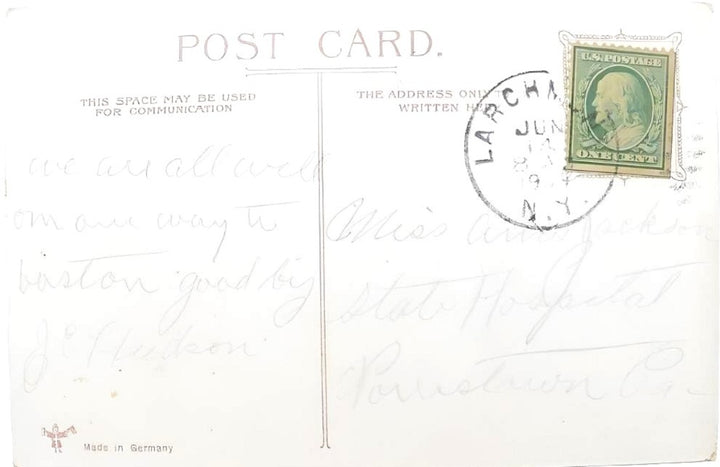 POST CARD.
THIS SPACE MAY BE USED
FOR COMMUNICATION
THE ADDRESS ONLY
WRITTEN
LARCHM
JUN
N.Y.
U.S. POSTAGE
ONE CENT
we are all well
om our way to
boston good by
J C Hudson
Miss Jackson
State Hospital
Norristown Pa
Made in Germany